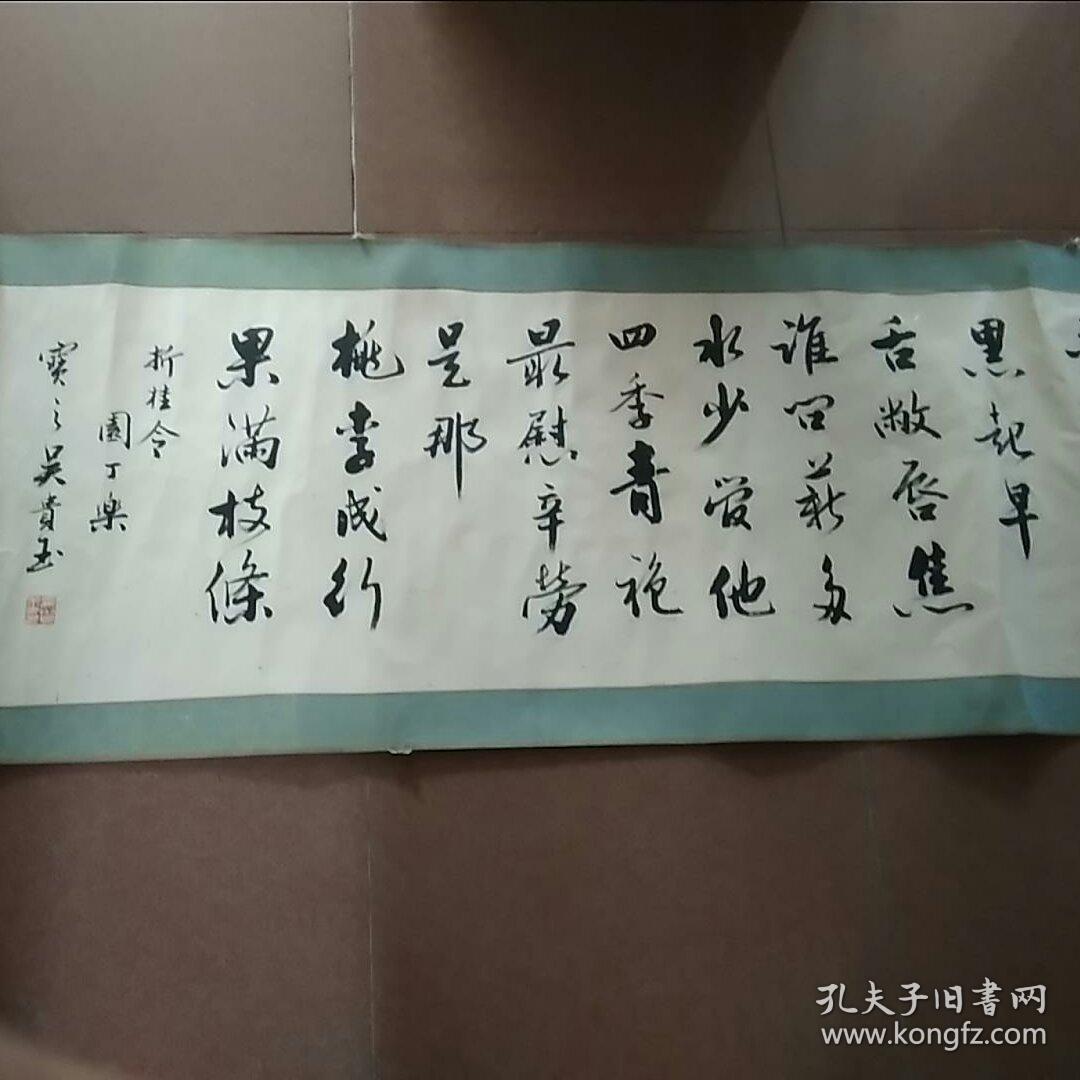 黑起早
舌敝唇焦
谁问薪多
水少管他
四季青袍
最慰辛勞
是那
桃李成行
果满枝條
折桂令
園丁樂
寶之吴貴玉
孔夫子旧書网
www.kongfz.com